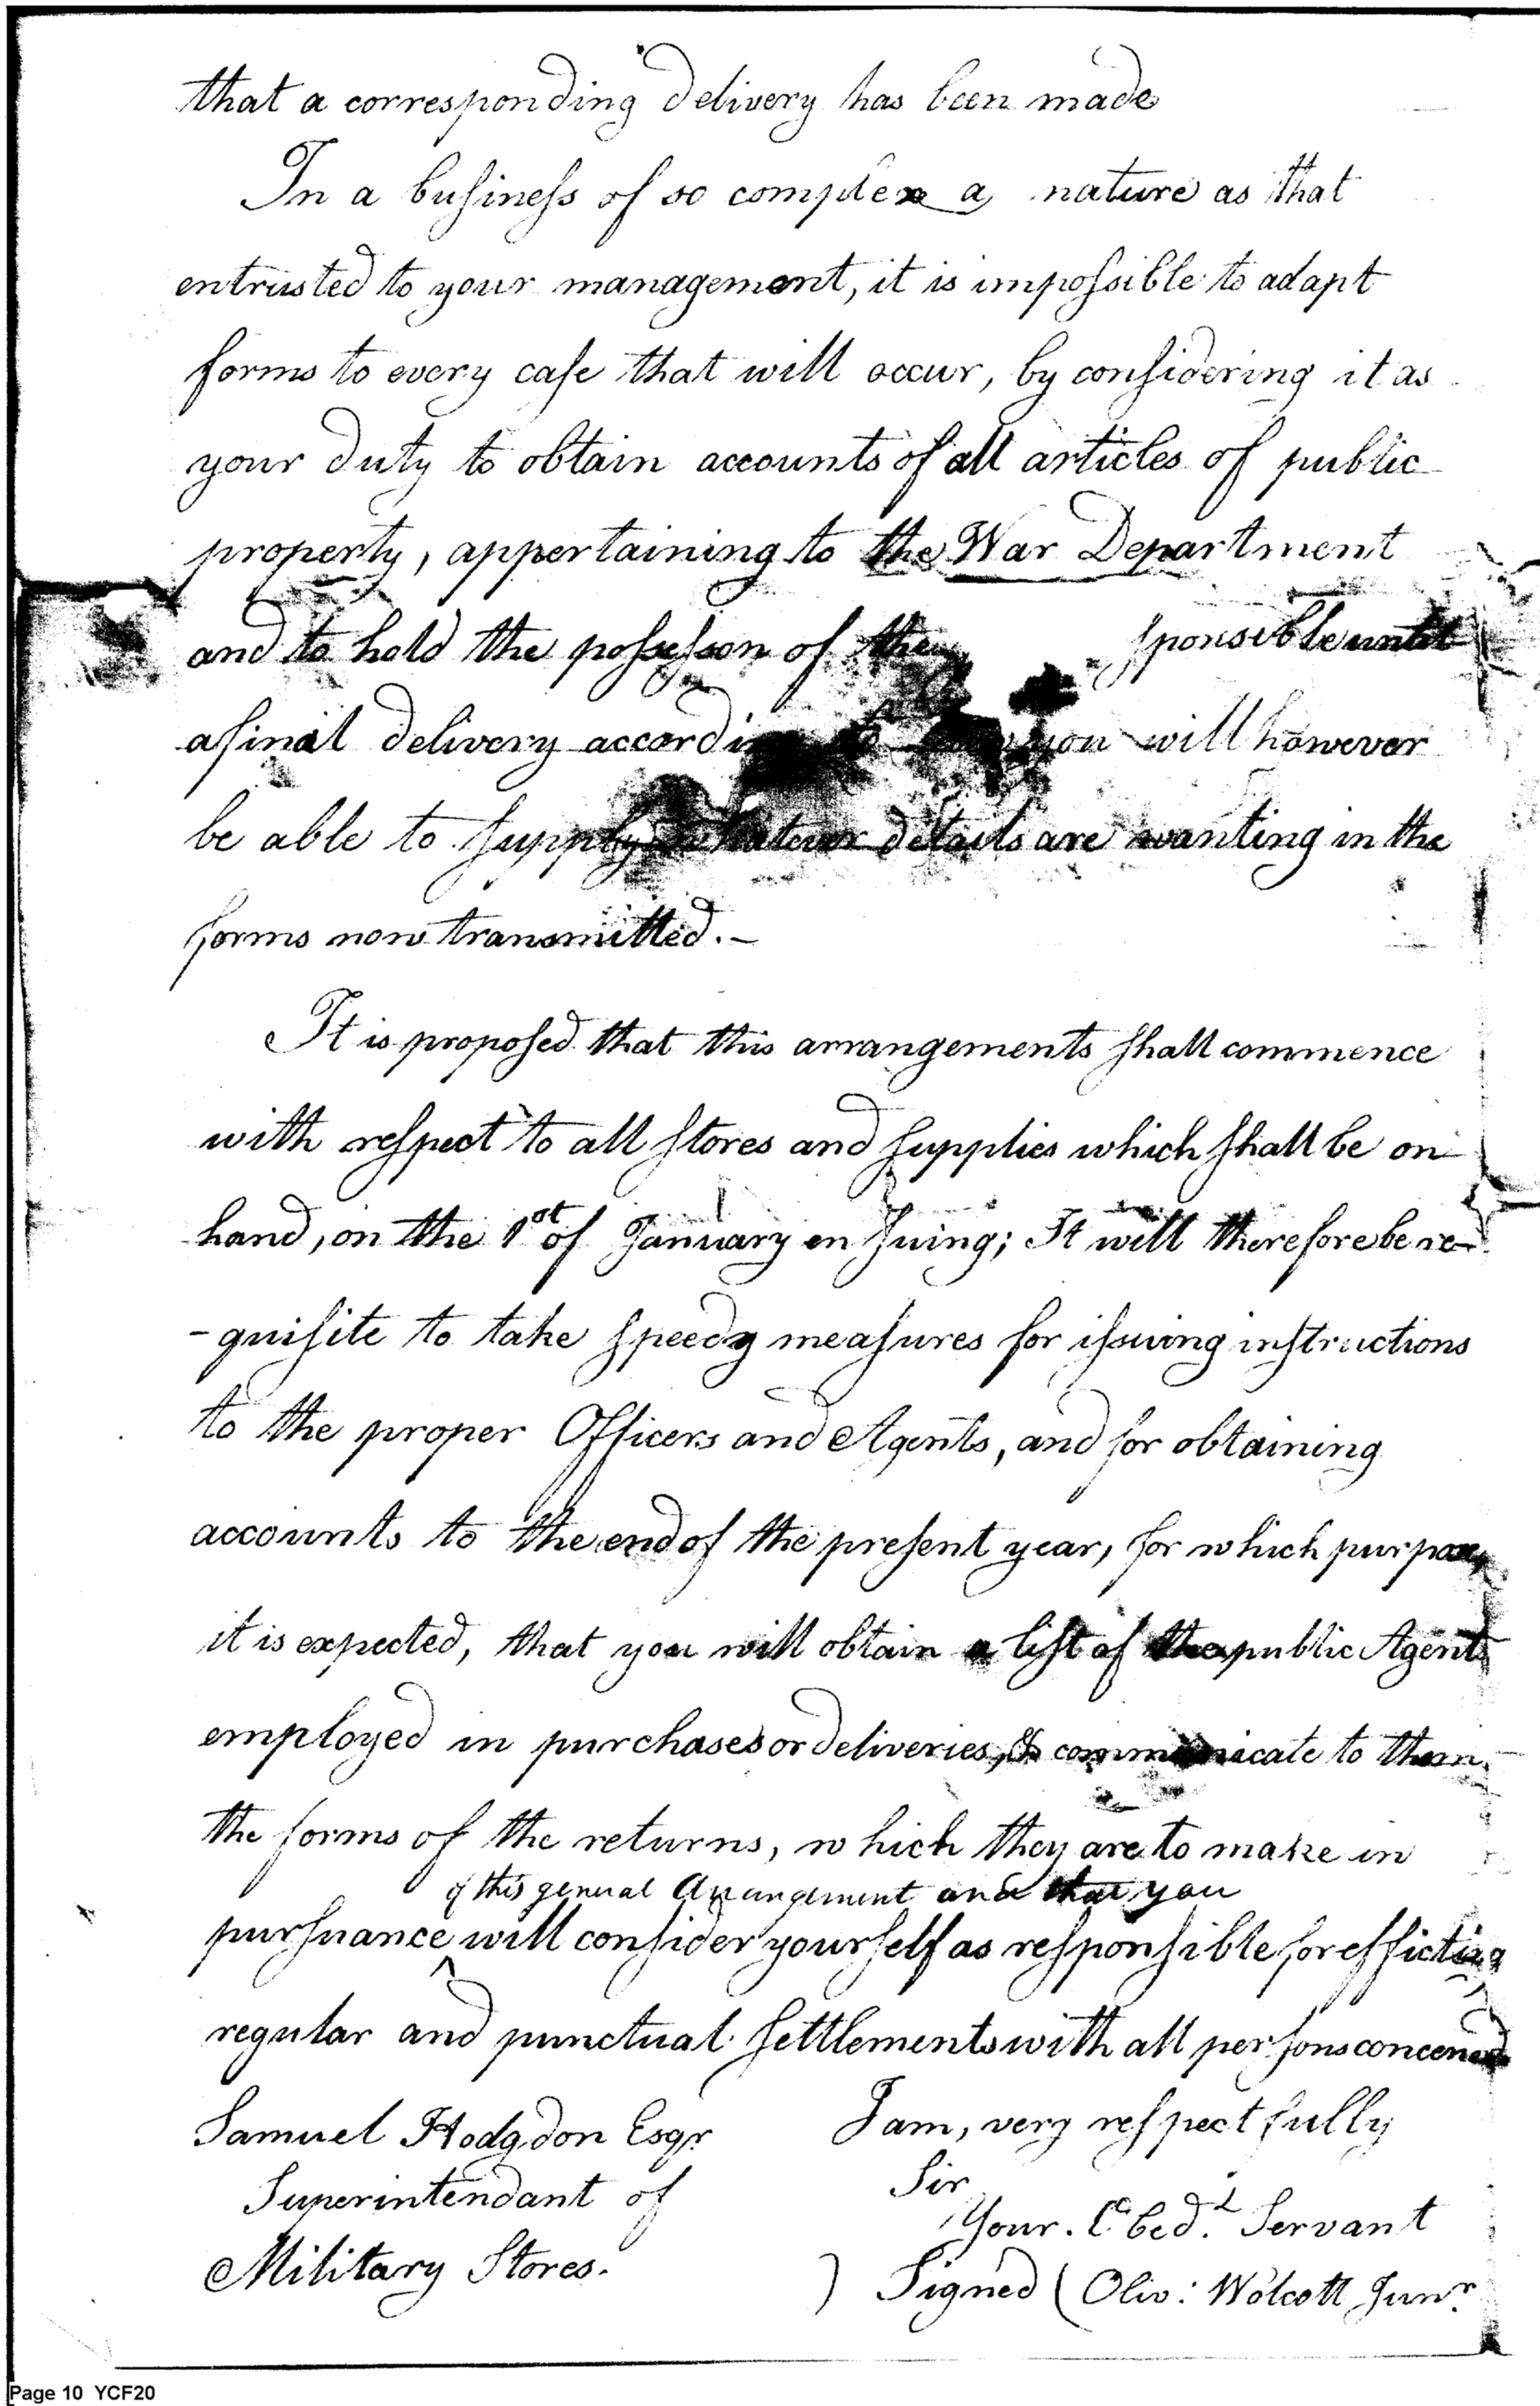 that a corresponding delivery has been made
In a busineſs of so complex a nature as that
entrusted to your management, it is impoſsible to adapt
forms to every caſe that will occur, by conſidering it as
your duty to obtain accounts of all articles of public
property, appertaining to the War Department
and to hold the poſseſsion of ſponsible until
a final delivery according you will however
be able to ſupply whatever details are wanting in the
forms now transmitted.—
It is propoſed that this arrangements ſhall commence
with reſpect to all ſtores and ſupplies which ſhall be on
hand, on the 1st of January en ſuing; It will therefore be re-
-quiſite to take ſpeedy meaſures for iſsuing inſtructions
to the proper Officers and Agents, and for obtaining
accounts to the end of the preſent year, for which purpose,
it is expected, that you will obtain a liſt of the public Agents
employed in purchases or deliveries, & communicate to them
the forms of the returns, which they are to make in
of this general Arrangement and that you
purſuance ^ will conſider yourſelf as reſponſible for efficting
regular and punctual ſettlements with all perſons concened
Samuel Hodgdon Esqr
Superintendant of
Military Stores.
I am, very reſpectfully
Sir
Your. Obed.t Servant
) Signed ( Oliv: Wolcott Junr.
Page 10 YCF20